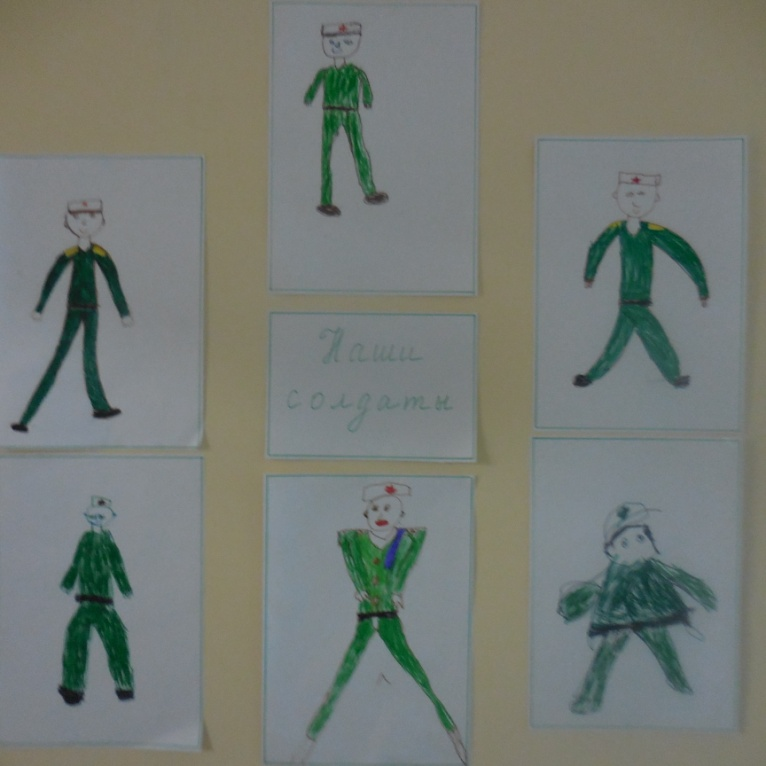 Наши
солдаты